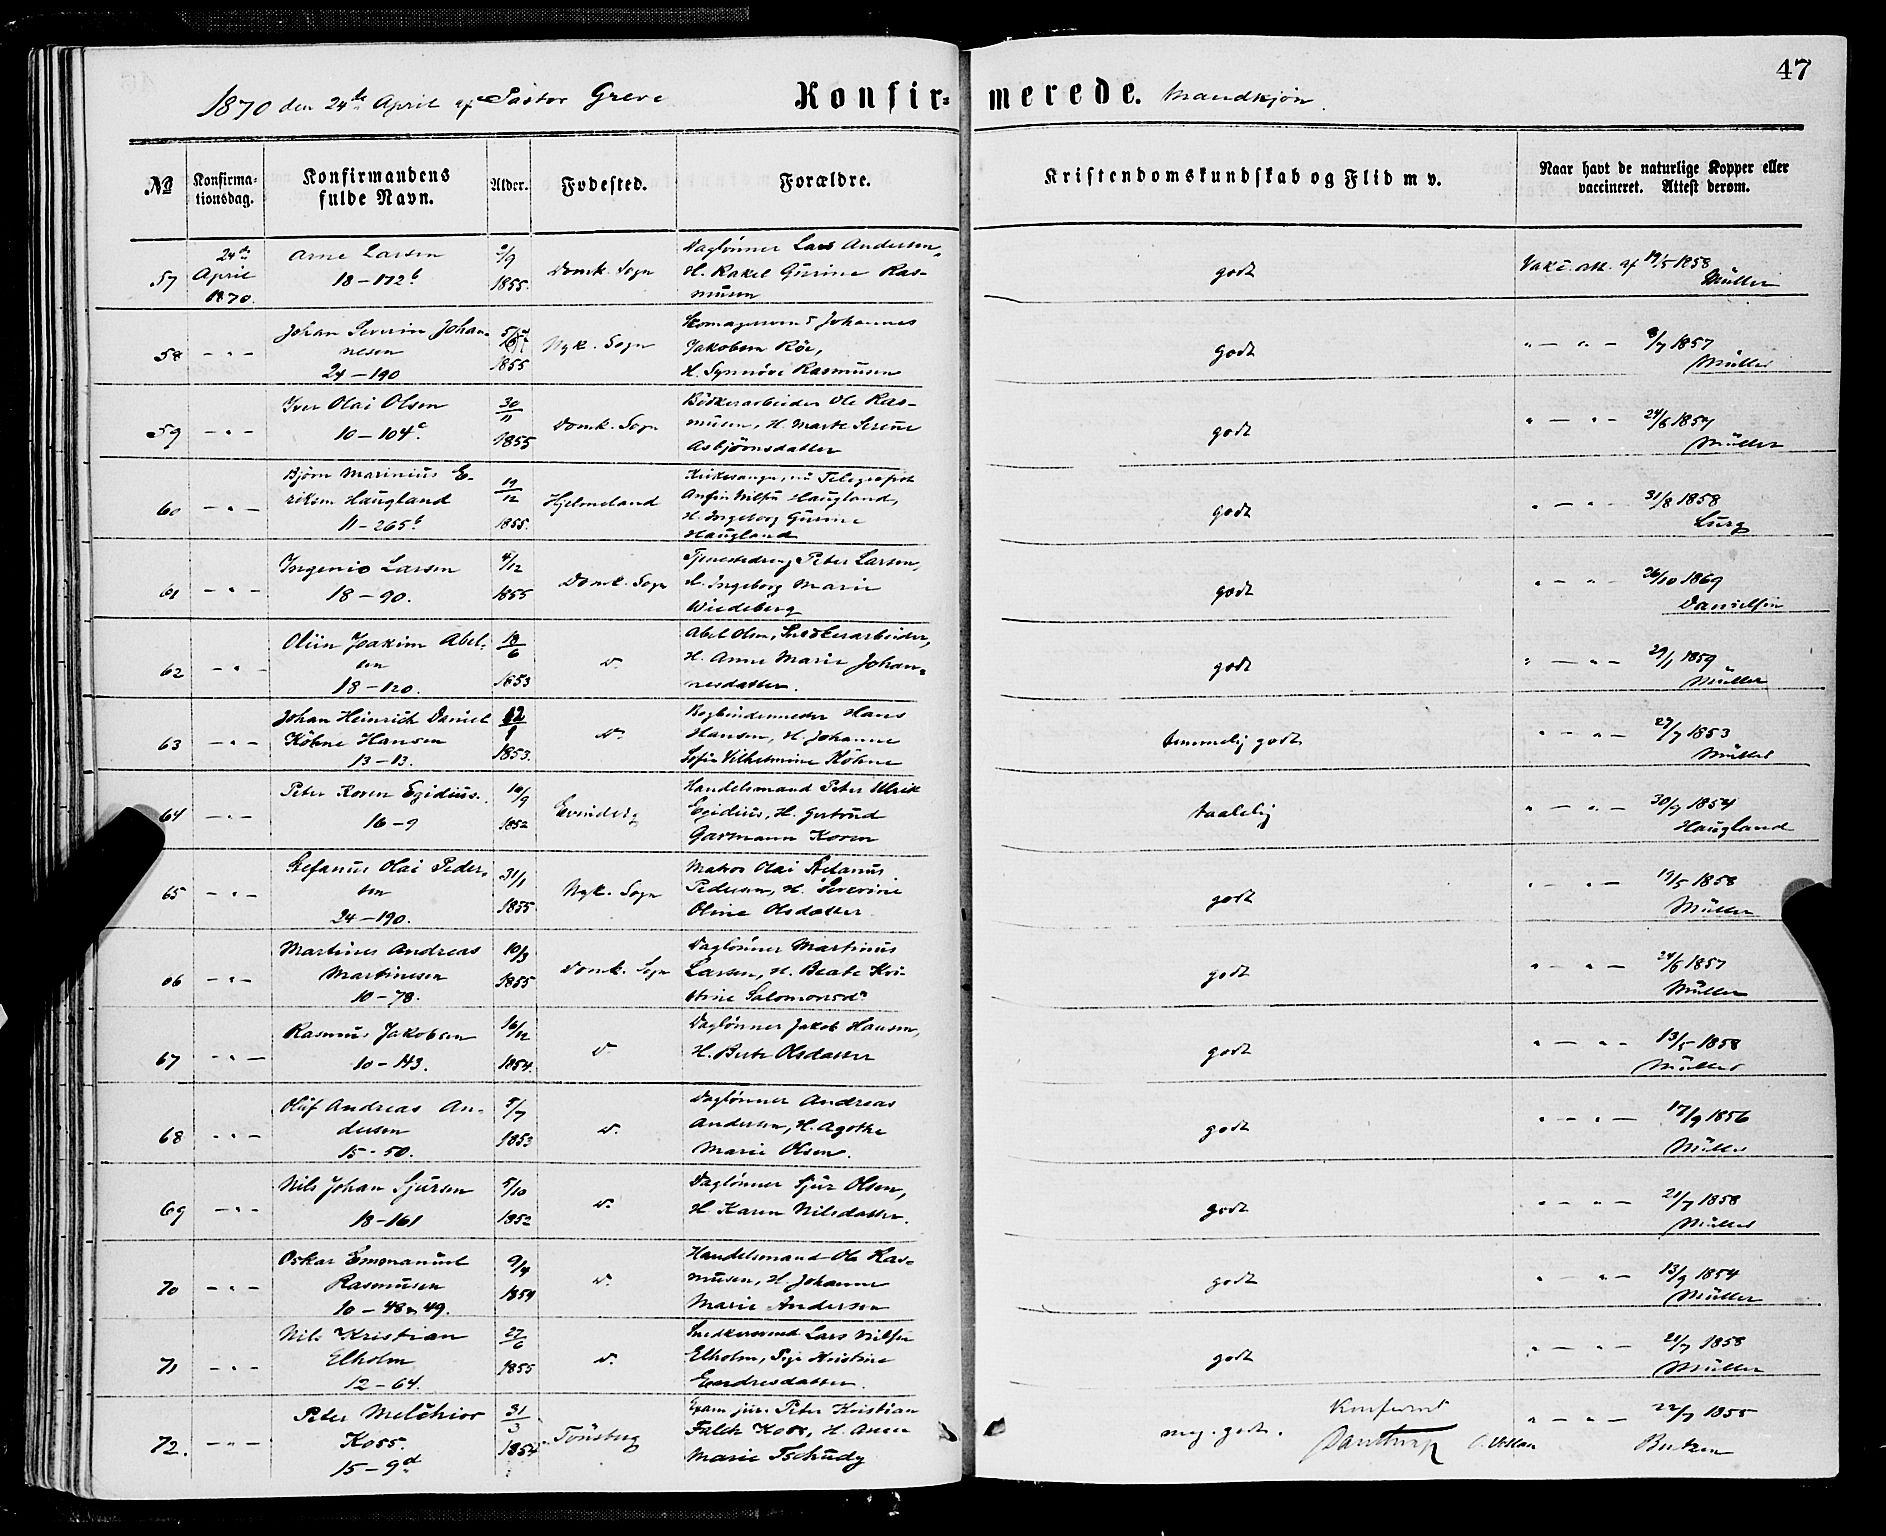 47
1870 den 24de April af Pastor Greve Konfir= merede. Mandkjøn.
№ Konfirma- tionsdag. Konfirmandens fulde Navn. Alder. Fødested. Forældre. Kristendomskundskab og Flid m v. Naar havt de naturlige Kopper eller vaccineret. Attest derom.
57 24de April 1870. Arne Larsen 18-172b /9 1855. Domk. Sogn Daglønner Lars Andersen, H. Rakel Gurine Rasmusen godt Vakc. att. af 19/5 1858 Müller
58 - " - Johan Severin Johannesen 24-190 1855 Nyk. Sogn Skomagersvend Johannes Jakobsen Röe, H. Synnöve Rasmusen godt " - " - 8/7 1857 Müller
59 - " - Iver Olai Olsen 10-104c 30/11 1855 Domk. Sogn Bödkerarbeider Ole Rasmusen, H. Marte Serine Asbjörnsdatter godt " - " - 24/6 1857 Müller
60 - " - Björn Marinius Eriksen Haugland 11-265b 19/12 1855. Hjelmeland Kirkesanger, nu Telegrafist Anfin Nilsen Haugland, H. Ingeborg Gurine Haugland godt " - " - 31/8 1858 Lurg
61 - " - Ingenio Larsen 18-90. 4/12 1855 Domk. Sogn Tjenestedreng Peter Larsen, H. Ingeborg Marie Wiedeberg godt " - " - 26/10 1869 Danielsen
62 - " - Oliin Joakim Abelsen 18-120. 18/6 1853 do Abel Olsen, Snedkerarbeider, H. Anne Marie Johannesdatter. godt " - " - 29/1 1859 Müller
63 - " - Johan Heinrich Daniel Köhne Hansen 13-13. 12/1 1853. do Bogbindermester Hans Hansen, H. Johanne Sofie Vilhelmine Köhne temmelig godt " - " - 27/7 1853 Müller
64 - " - Peter Koren Egidius. 16-9 10/9 1852 Evindvig Handelsmand Peter Ulrik Egidius, H. Gertrud Garmann Koren taalelig " - " - 30/9 1854 Haugland
65 - " - Stefanus Olai Pedersen 24-190. 31/1 1855 Nyk. Sogn Matros Olai Stefanus Pedersen, H. Severine Oline Olsdatter godt " - " - 19/5 1858 Müller
66 - " - Martines Andreas Martinesen 10-78. 10/3 1855 Domk. Sogn Daglønner Martinus Larsen, H. Beate Kristine Salomonsdr godt " - " - 24/6 1857 Müller
67 - " - Rasmus Jakobsen 10-143. 16/12 1854. do Daglønner Jakob Hansen, H. Berte Olsdatter godt " - " - 13/5 1858 Müller
68 - " - Oluf Andreas Andersen 15-50. 5/7 1853 do Daglønner Andreas Andersen, H. Agothe Marie Olsen. godt " - " - 17/9 1856 Müller
69 - " - Nils Johan Sjursen 18-161 5/10 1852 do Daglønner Sjur Olsen, H. Karen Nilsdatter. godt " - " - 21/7 1858 Müller
70 - " - Oskar Emmanuel Rasmusen 10-48 & 49. 9/4 1854 do Handelsmand Ole Rasmusen, H. Johanne Marie Andersen godt " - " - 13/9 1854 Müller
71 - " - Nils Kristian Elholm 12-64. 27/6 1855 do Snedkersvend Lars Nilsen Elholm, Pige Kristine Endresdatter. godt " - " - 21/7 1858 Müller
72. - " - Peter Melchior Koss. 15-9d 31/3 1854 Tönsberg Exam. jur. Peter Kristian Falck Koss, H. Anne Marie Tschudy meg. godt. Konfereret " - " - 22/7 1855